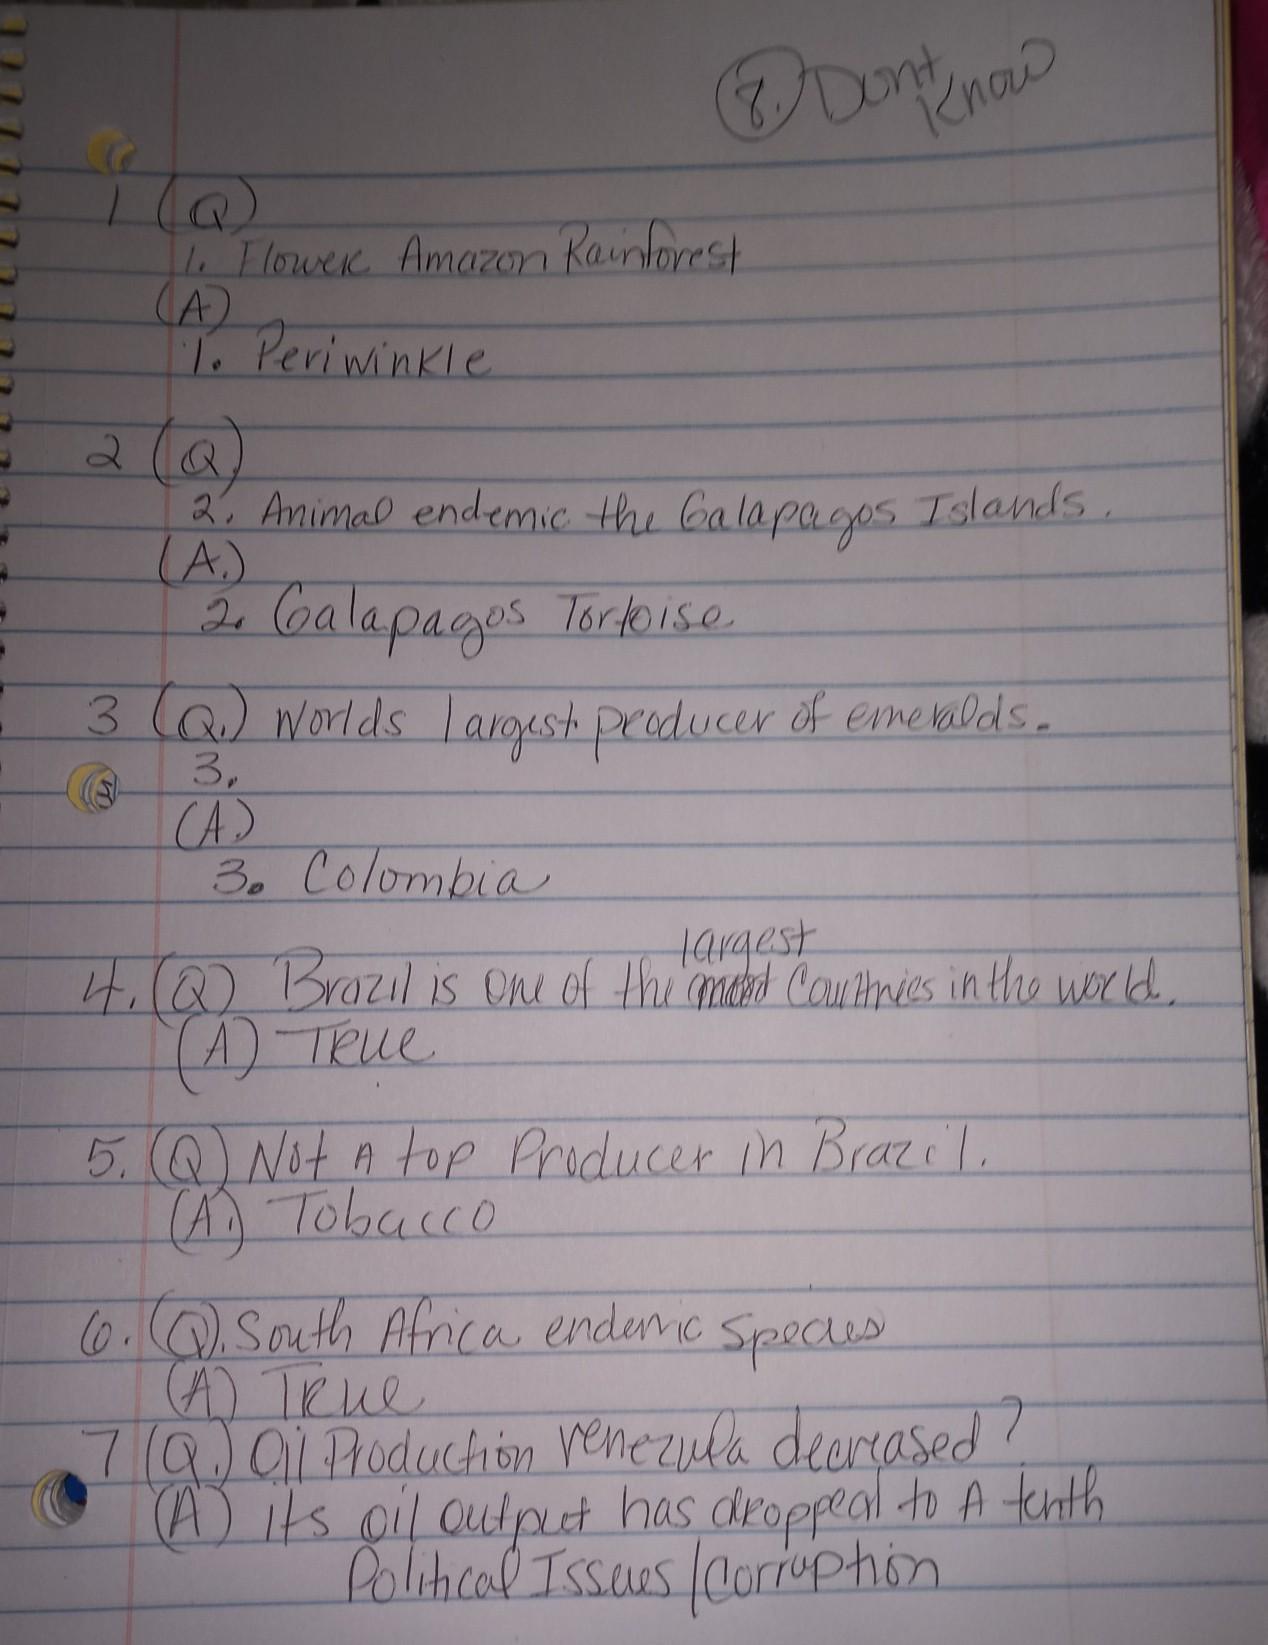 8. Dont
Know
1 (Q)
1. Flower Amazon Rainforest
(A)
1. Periwinkle
2 (Q)
2. Animal endemic the Galapagos Islands.
(A.)
2. Galapagos Tortoise
3 (Q.) Worlds largest producer of emeralds.
3.
(A.)
3. Colombia
largest
4. (Q) Brazil is one of the Countries in the world.
(A) True
5. (Q) Not A top Producer in Brazil.
(A.) Tobacco
6. (Q). South Africa endemic Species
(A) True
7 (Q.) Oil Production Venezula decreased?
(A) its oil output has dropped to A tenth
Political Issues/Corruption